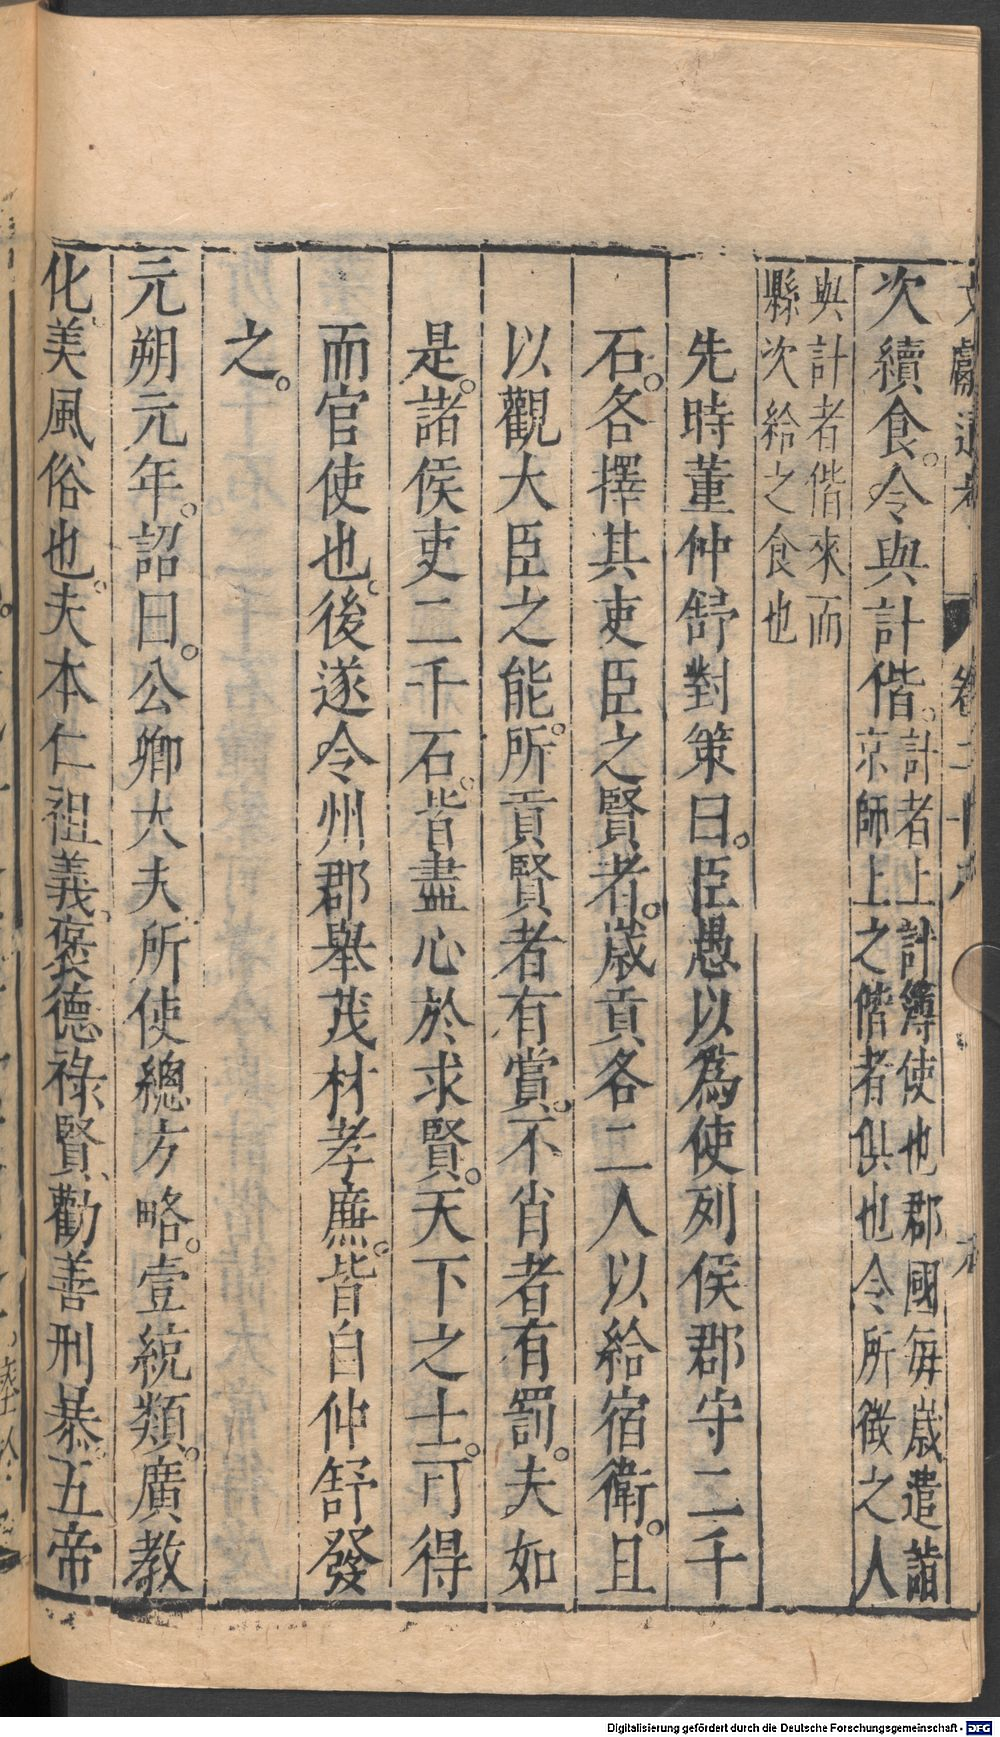 文獻通考 卷二十八
次續食。令與計偕。計者上計簿使也郡國每歲遣詣
京師上之偕者俱也令所徵之人
與計者偕來而
縣次給之食也
先時董仲舒對策曰。臣愚以為使列侯郡守二千
石。各擇其吏臣之賢者。歲貢各二人以給宿衛。且
以觀大臣之能。所貢賢者有賞。不肖者有罰。夫如
是。諸侯吏二千石。皆盡心於求賢。天下之士。可得
而官使也。後遂令州郡舉茂材孝廉。皆自仲舒發
之。
元朔元年。詔曰。公卿大夫所使總方略。壹統類。廣教
化。美風俗也。夫本仁祖義。褒德祿賢、勸善刑暴。五帝
Digitalisierung gefördert durch die Deutsche Forschungsgemeinschaft - DFG